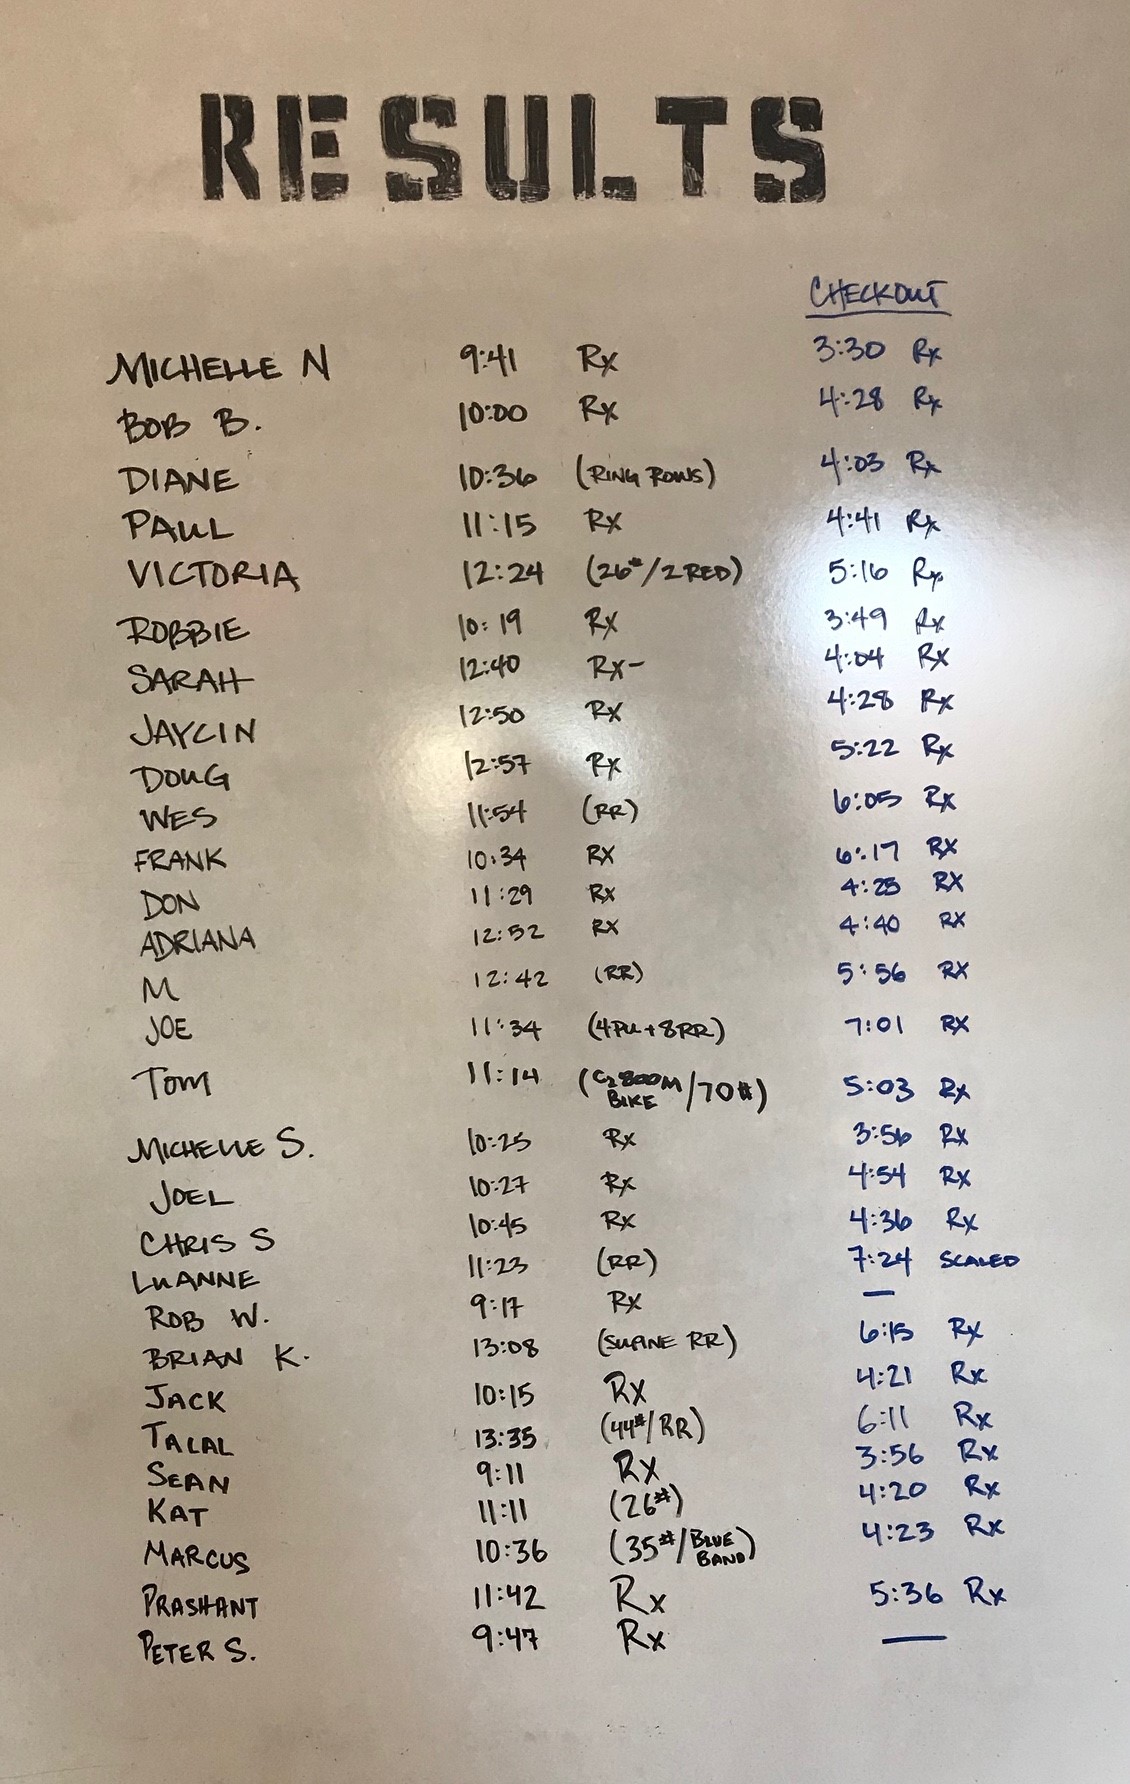 RESULTS
CHECKOUT
MICHELLE N 9:41 Rx 3:30 Rx
BOB B. 10:00 Rx 4:28 Rx
DIANE 10:36 (RING ROWS) 4:03 Rx
PAUL 11:15 Rx 4:41 Rx
VICTORIA 12:24 (26#/2 RED) 5:16 Rx
ROBBIE 10:19 Rx 3:49 Rx
SARAH 12:40 Rx- 4:04 Rx
JAYCIN 12:50 Rx 4:28 Rx
DOUG 12:57 Rx 5:22 Rx
WES 11:54 (RR) 6:05 Rx
FRANK 10:34 RX 6:17 RX
DON 11:29 Rx 4:25 RX
ADRIANA 12:52 RX 4:40 RX
M 12:42 (RR) 5:56 RX
JOE 11:34 (4PU+8RR) 7:01 RX
TOM 11:14 (C2 800M BIKE/70#) 5:03 Rx
MICHELLE S. 10:25 Rx 3:56 Rx
JOEL 10:27 Rx 4:54 Rx
CHRIS S 10:45 Rx 4:36 Rx
LUANNE 11:23 (RR) 7:24 SCALED
ROB W. 9:17 Rx —
BRIAN K. 13:08 (SUPINE RR) 6:15 Rx
JACK 10:15 RX 4:21 Rx
TALAL 13:35 (44#/RR) 6:11 Rx
SEAN 9:11 RX 3:56 Rx
KAT 11:11 (26#) 4:20 Rx
MARCUS 10:36 (35#/BLUE BAND) 4:23 Rx
PRASHANT 11:42 Rx 5:36 Rx
PETER S. 9:47 Rx —